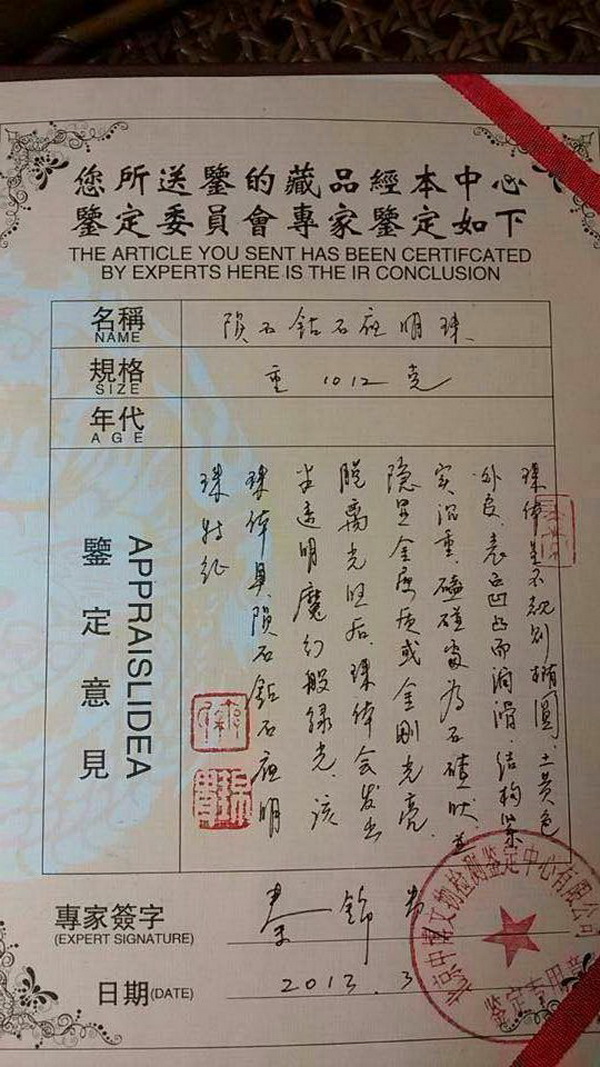 您所送鑒的藏品經本中心
鑒定委員會專家鑒定如下
THE ARTICLE YOU SENT HAS BEEN CERTIFCATED
BY EXPERTS HERE IS THE IR CONCLUSION
名稱
NAME
陨石钻石夜明珠
規格
SIZE
重1012克
年代
AGE
鑒定意見
APPRAISLIDEA
珠体呈不规则椭圆,土黄色
外皮,表面凹凸而润滑,结构紧
实沉重,磕碰处为石碴状,并
隐显金属质或金刚光亮,
脱离光照后,珠体会发出
半透明魔幻般绿光,该
珠体具陨石钻石夜明
珠特征
專家簽字
(EXPERT SIGNATURE)
秦锦
日期(DATE)
2013.3
文物检测鉴定中心有限公司
鉴定专用章